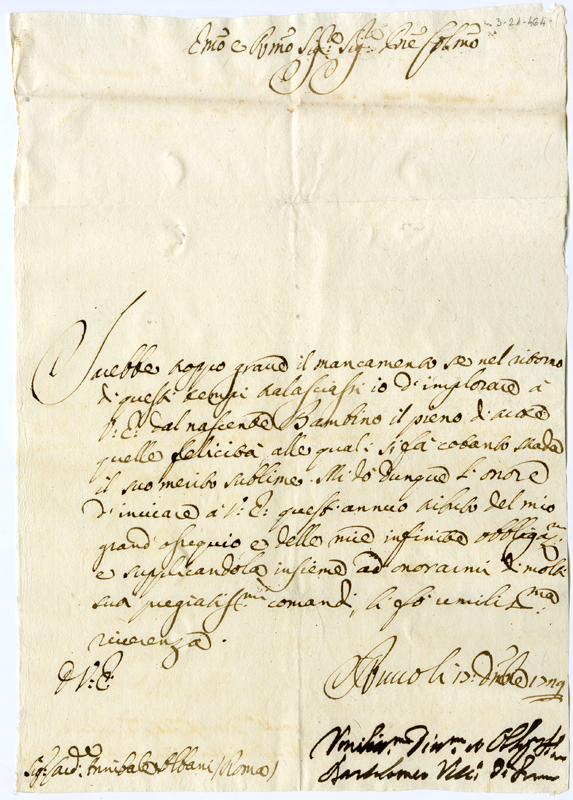 3-21-464
Emo e Rmo Sig.re Sig.re Prne Colmo
Sarebbe troppo grande il mancamento se nel ritorno
di questi tempi tralasciassi io d'implorare à
V: E: dal nascente Bambino il pieno di tutte
quelle felicità alle quali si fà cotanto strada
il suo merito sublime. Mi dò dunque l'onore
d'inviare à V: E: quest'annuo tributo del mio
grand'ossequio, e delle mie infinite obbligaz.ni
e supplicandola insieme ad onorarmi di molti
suoi pregiatiss.mi comandi, li fò umiliss.ma
riverenza.
D V: E:
13: Dbre 1719
Sig.r Card. Annibale Albani (Roma)
Umiliss.mo Div.mo ed Obbl.mo
Bartolomeo